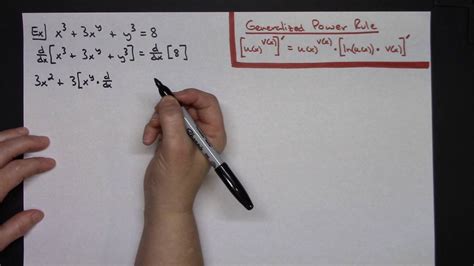 Ex) x³ + 3x^y + y³ = 8
d/dx[x³ + 3x^y + y³] = d/dx[8]
3x² + 3[x^y · d/dx
Generalized Power Rule
[u(x)^v(x)]' = u(x)^v(x) · [ln(u(x)) · v(x)]'
Sharpie